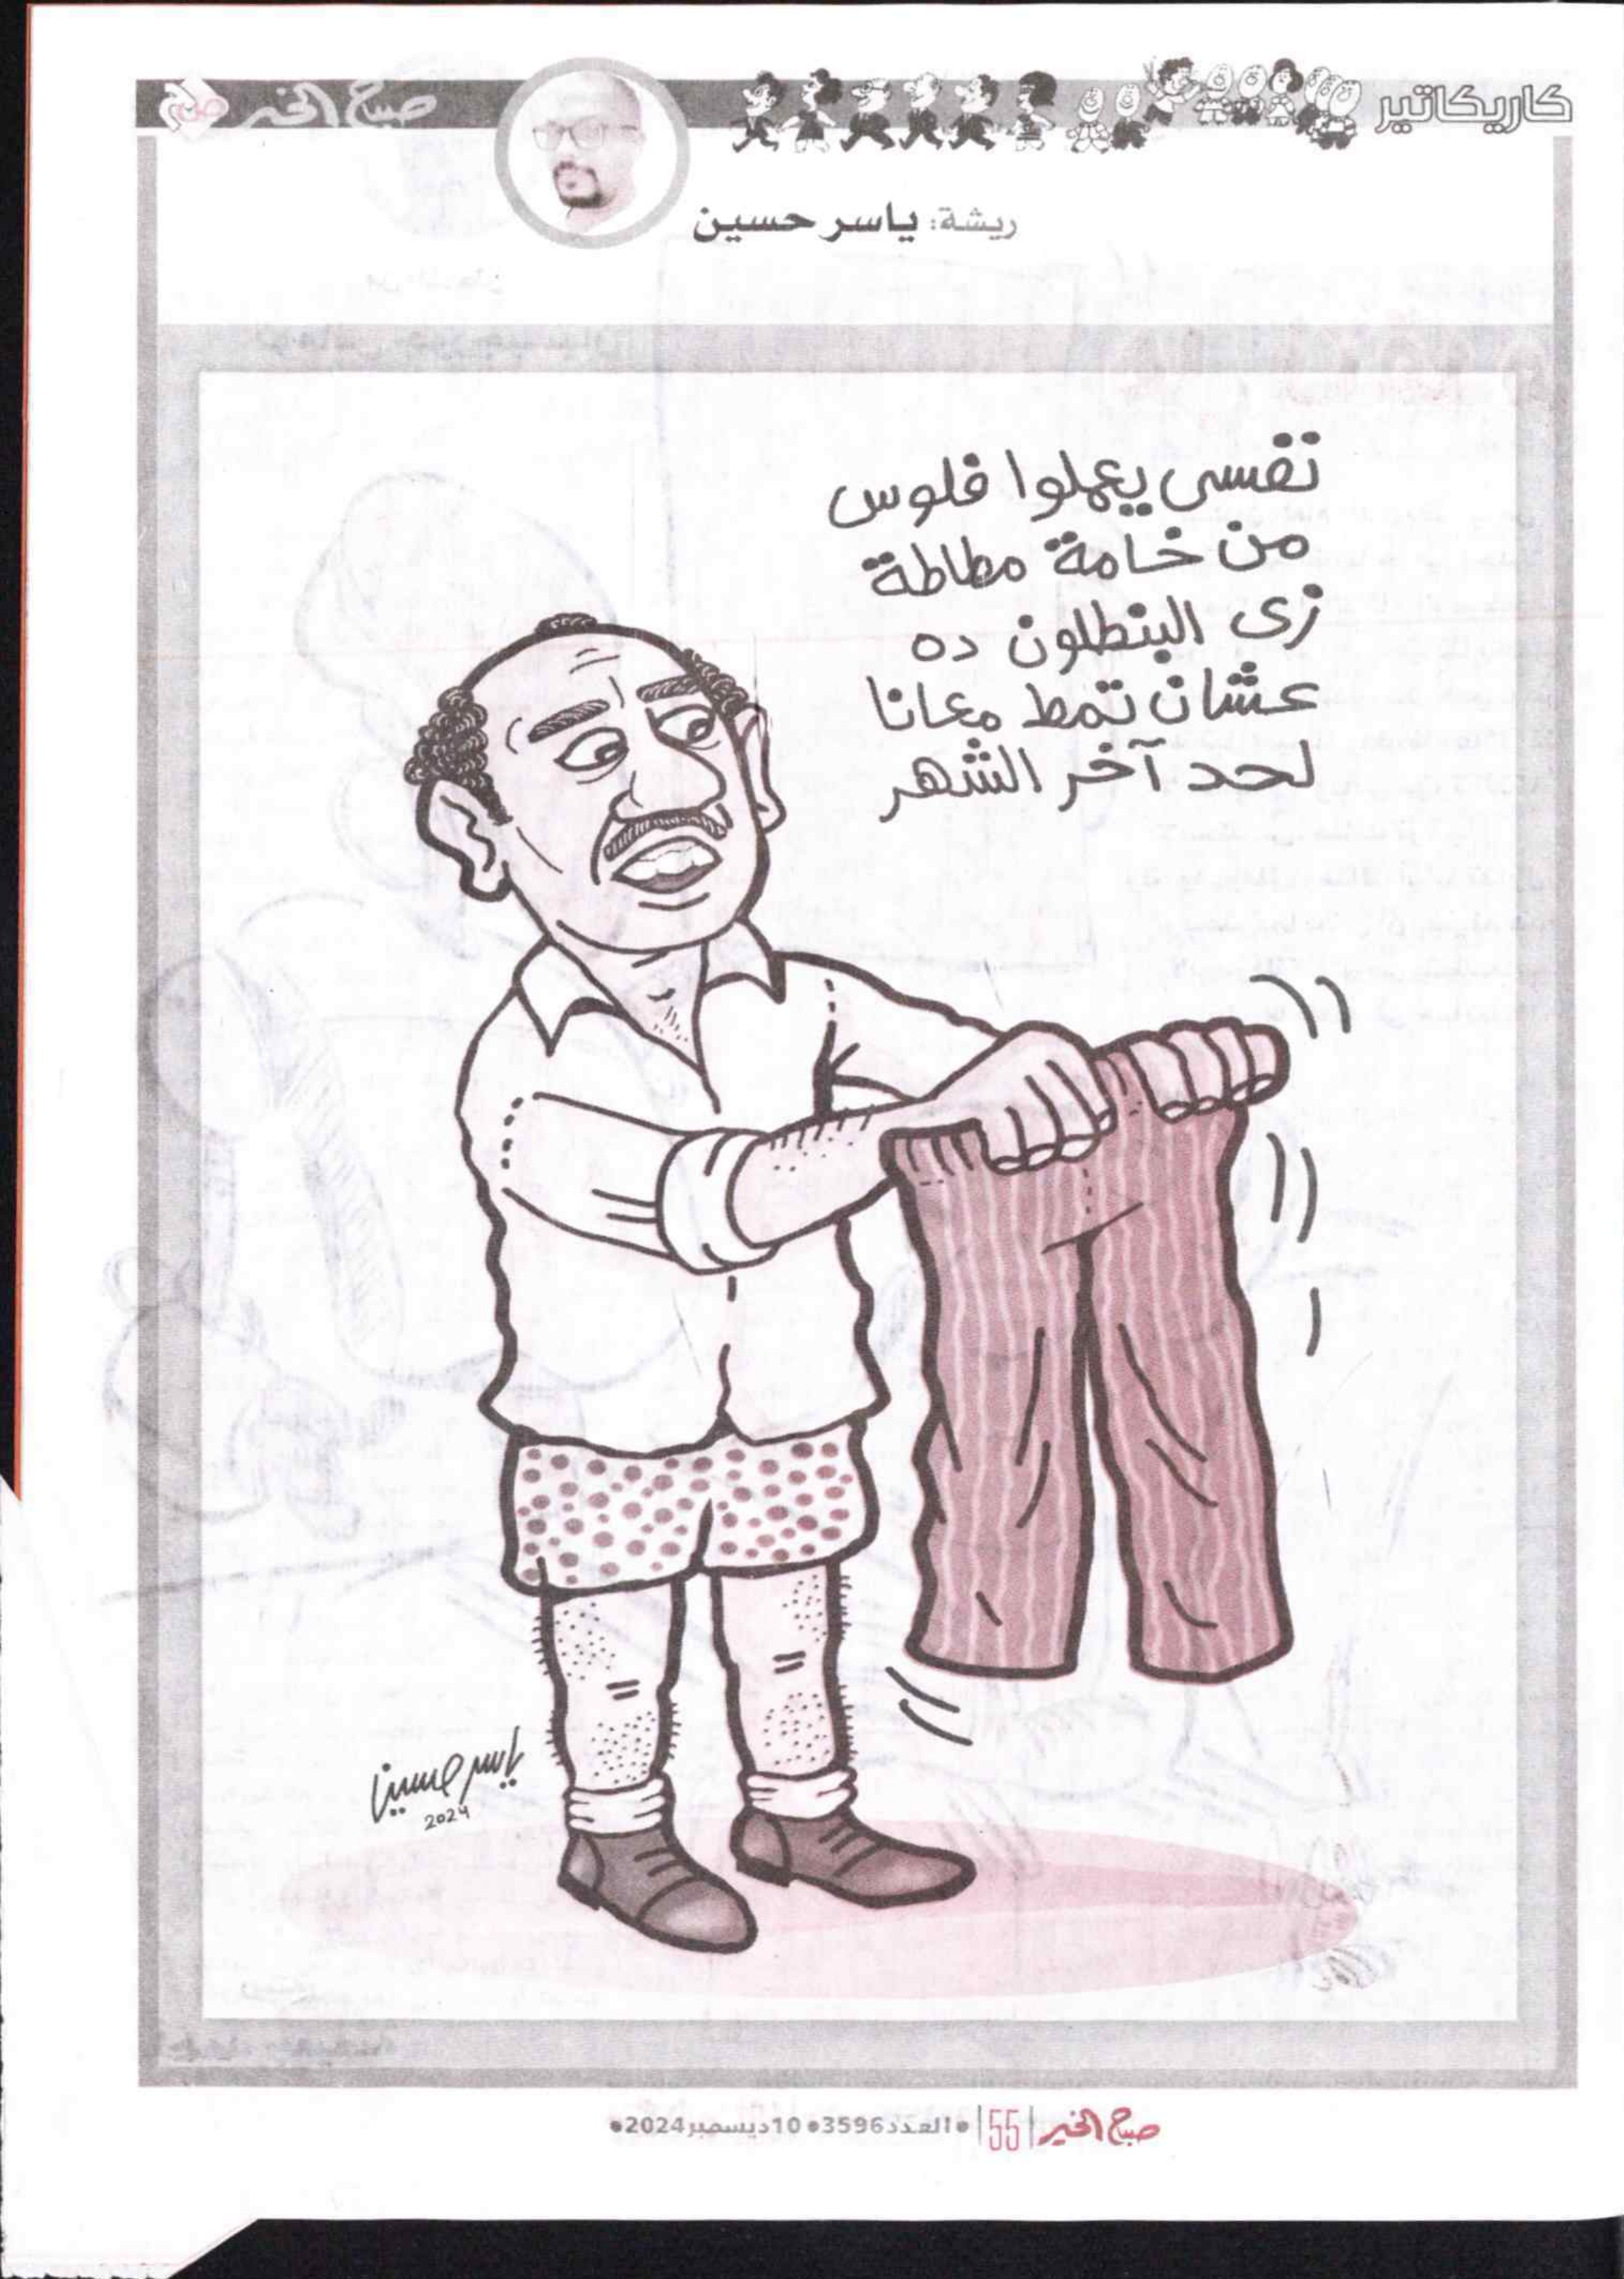 كاريكاتير
صباح الخير
ريشة: ياسر حسين
نفسى يعملوا فلوس
من خامة مطاطة
زى البنطلون ده
عشان تمط معانا
لحد آخر الشهر
ياسر حسين
2024
صباح الخير | 55 | •العدد3596• 10ديسمبر2024•